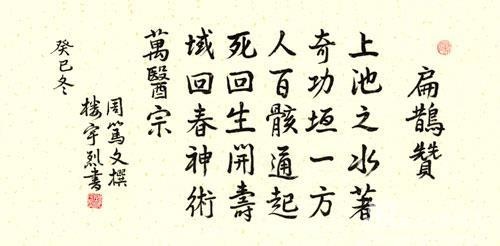 扁鵲贊
上池之水著
奇功垣一方
人百骸通起
死回生開壽
域回春神術
萬醫宗
周篤文撰
樓宇烈書
癸巳冬